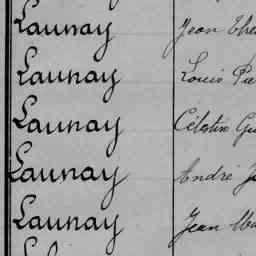 Launay Jean
Launay Louis
Launay Célestin
Launay André
Launay Jean